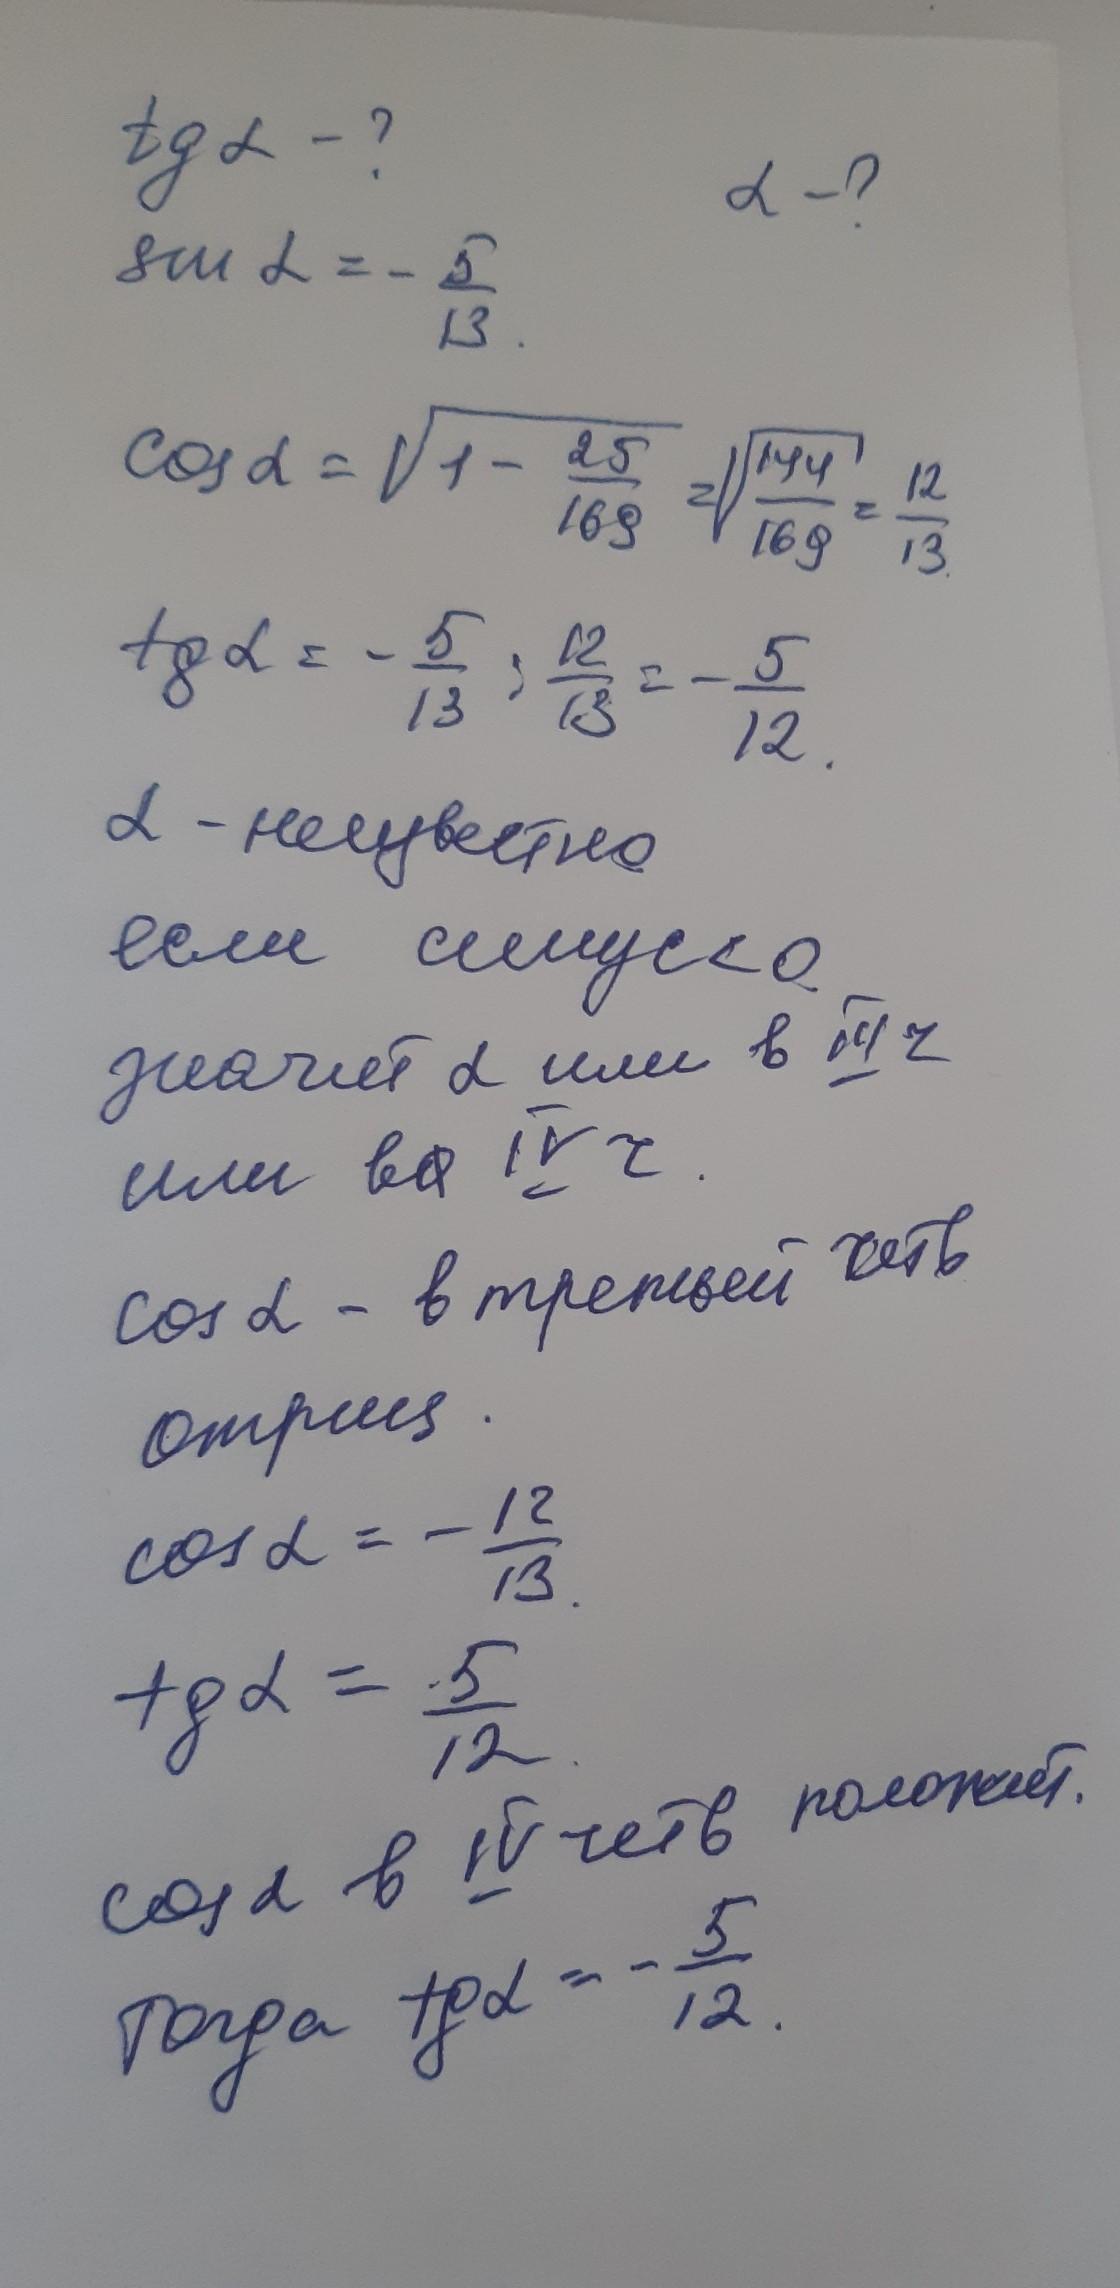 tg α - ?
α - ?
sin α = - 5/13.
cos α = √(1 - 25/169) = √(144/169) = 12/13.
tg α = - 5/13 : 12/13 = - 5/12.
α - неизвестно
если синус < 0
значит α или в III ч
или во IV ч.
cos α - в третьей четв
отриц.
cos α = - 12/13.
tg α = 5/12.
cos α в IV четв положит.
Тогда tg α = - 5/12.